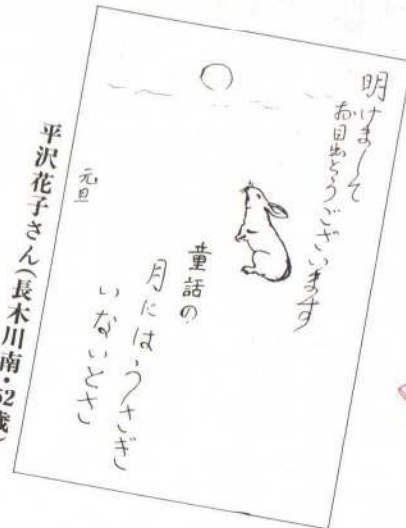 明けまして
お目出とうございます
童話の
月にはうさぎ
いないとさ
元旦
平沢花子さん(長木川南・52歳)